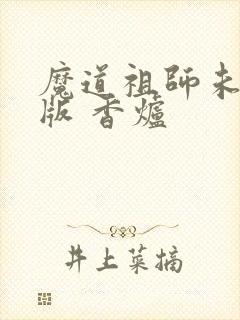 魔道祖師未
版 香爐
井上菜摘